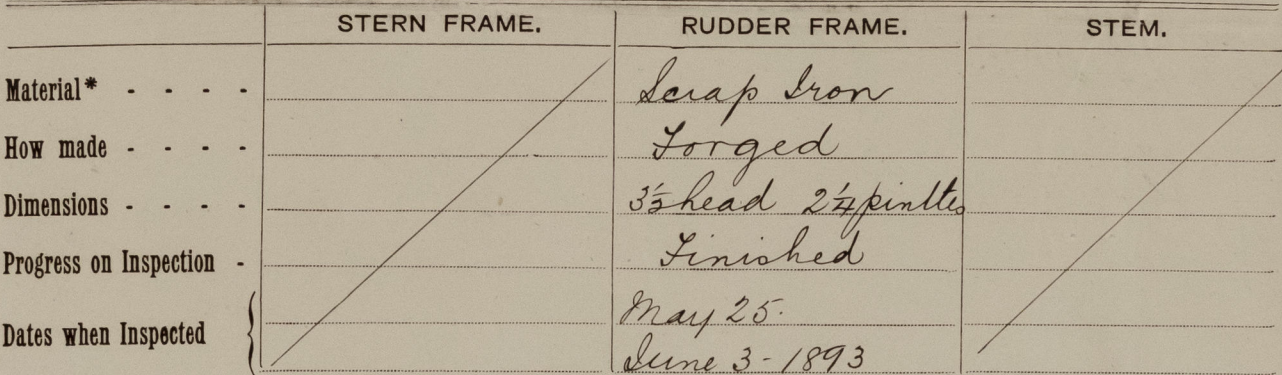 STERN FRAME. RUDDER FRAME. STEM.
Material* - - - - Scrap Iron
How made - - - - Forged
Dimensions - - - - 3½ head 2¼ pintles
Progress on Inspection - Finished
Dates when Inspected { May 25.
June 3 - 1893